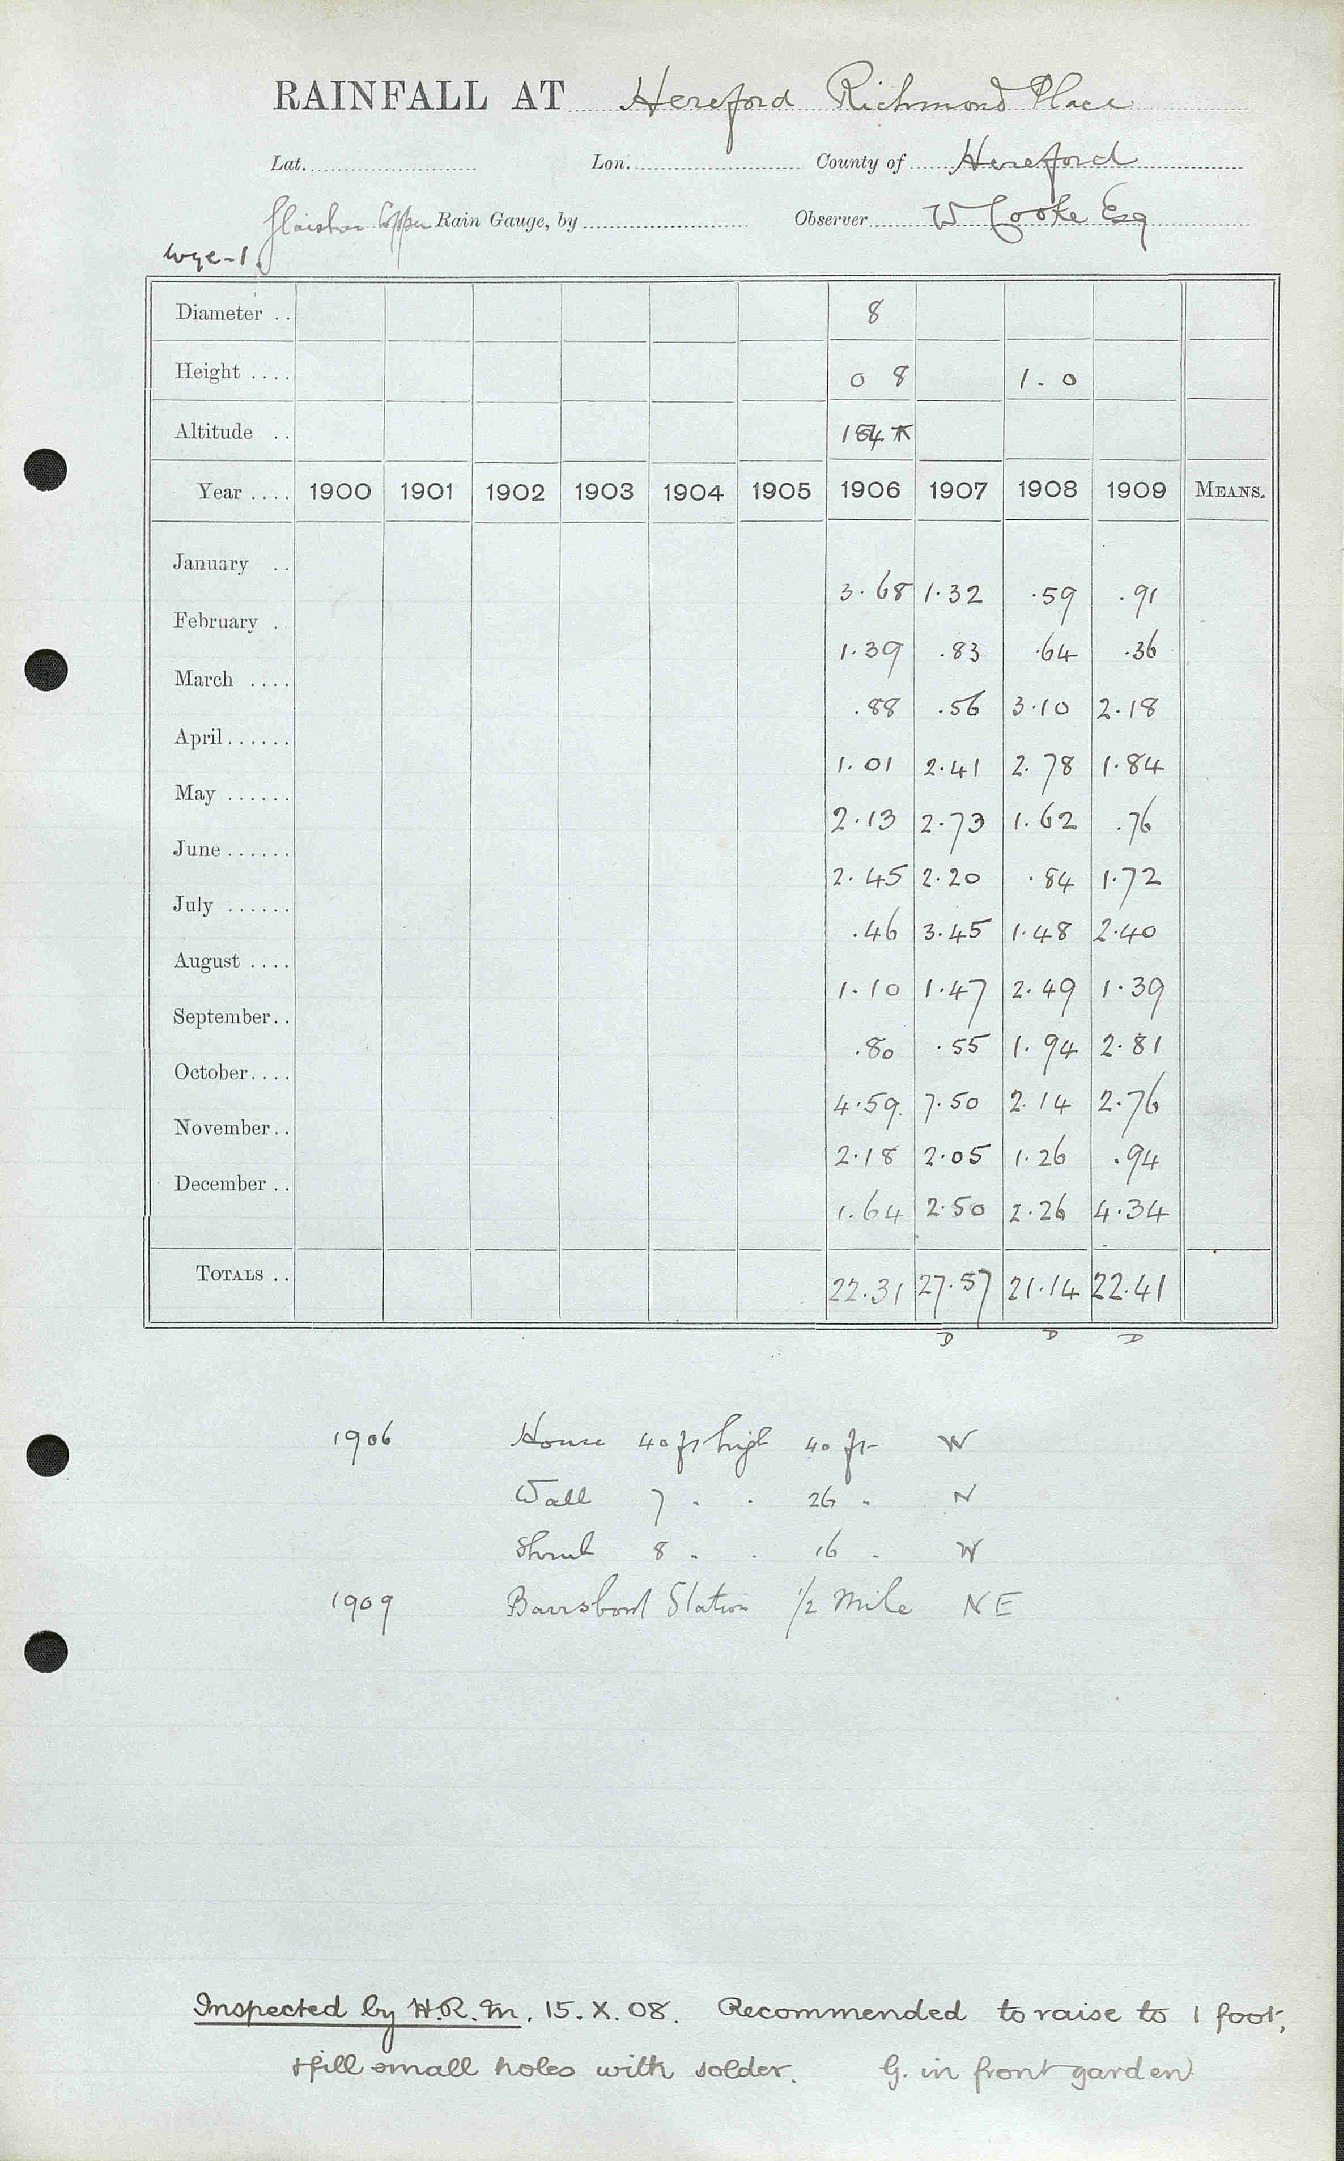 RAINFALL AT Hereford Richmond Place
Lat. Lon. County of Hereford
Glaisher Copper Rain Gauge, by Observer W Cooke Esq
Wye-1.
Diameter .. 8
Height .... 0 8 1.0
Altitude ..
Year .... 1900 1901 1902 1903 1904 1905 1906 1907 1908 1909 MEANS.
January .. 3.68 1.32 .59 .91
February . 1.39 .83 .64 .36
March .... .88 .56 3.10 2.18
April...... 1.01 2.41 2.78 1.84
May ...... 2.13 2.73 1.62 .76
June ...... 2.45 2.20 .84 1.72
July ...... .46 3.45 1.48 2.40
August .... 1.10 1.47 2.49 1.39
September.. .80 .55 1.94 2.81
October.... 4.59 7.50 2.14 2.76
November.. 2.18 2.05 1.26 .94
December .. 1.64 2.50 2.26 4.34
TOTALS .. 22.31 27.57 21.14 22.41
D D D
1906 House 40 ft high 40 ft W
Wall 7 " " 26 " N
Shrub 8 " " 16 " W
1909 Station 1/2 Mile NE
Inspected by H.R.M. 15.X.08. Recommended to raise to 1 foot,
& fill small holes with solder. G. in front garden